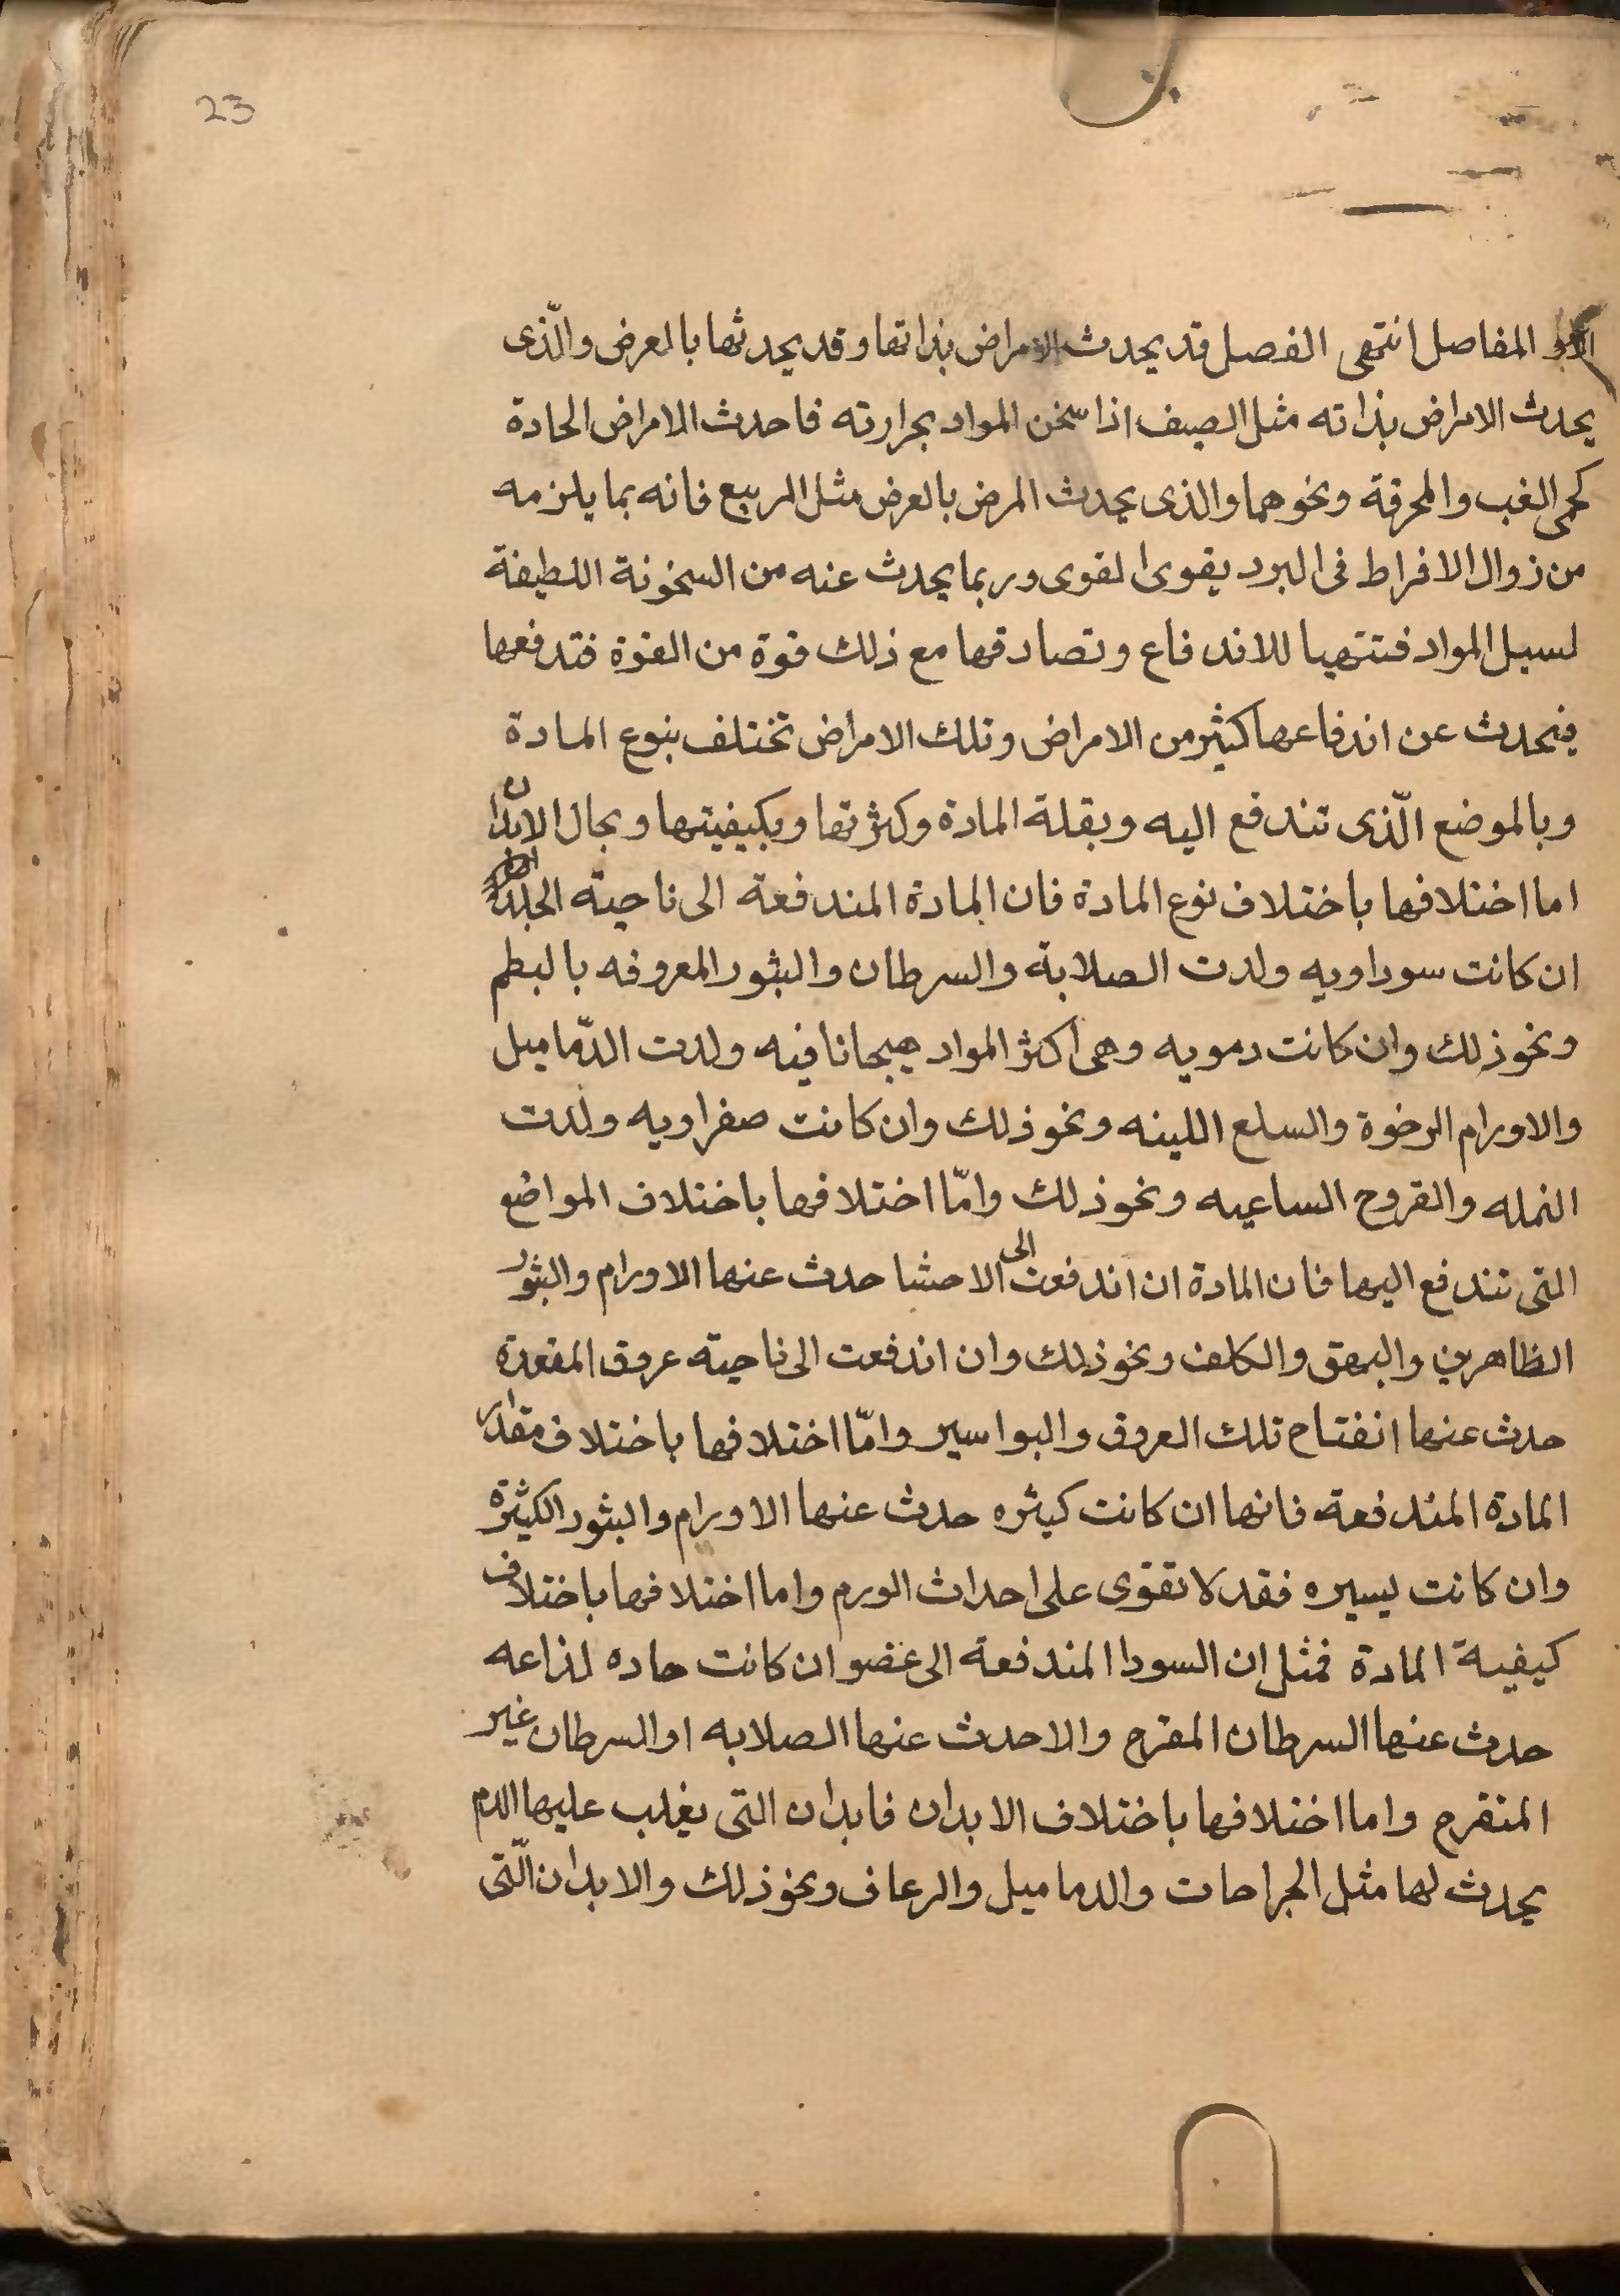 23
المفاصل انتهى الفصل قد يحدث الامراض بذاتها وقد يحدثها بالعرض والّذى
يحدث الامراض بذاته مثل الصيف اذا سخن المواد بحرارته فاحدث الامراض الحادة
كحمى الغب والمحرقة ونحوهما والذى يحدث المرض بالعرض مثل الربيع فانه بما يلزمه
من زوال الافراط فى البرد يقوى القوى وربما يحدث عنه من السخونة اللطيفة
لسيل المواد فتتهيا للاندفاع وتصادفها مع ذلك قوة من القوة فتدفعها
فيحدث عن اندفاعها كثير من الامراض وتلك الامراض تختلف بنوع المادة
وبالموضع الّذى تندفع اليه وبقلة المادة وكثرتها وبكيفيتها وبحال الابدان
اما اختلافها باختلاف نوع المادة فان المادة المندفعة الى ناحية الجلد
ان كانت سوداويه ولدت الصلابة والسرطان والبثور المعروفه بالبطم
ونحو ذلك وان كانت دمويه وهى اكثر المواد هيجانا فيه ولدت الدّماميل
والاورام الرخوة والسلع اللينه ونحو ذلك وان كانت صفراويه ولدت
النمله والقروح الساعيه ونحو ذلك وامّا اختلافها باختلاف المواضع
التى تندفع اليها فان المادة ان اندفعت الى الاحشا حدث عنها الاورام والبثور
الظاهرين والبهق والكلف ونحو ذلك وان اندفعت الى ناحية عروق المقعدة
حدث عنها انفتاح تلك العروق والبواسير وامّا اختلافها باختلاف مقدار
المادة المندفعة فانها ان كانت كثيره حدث عنها الاورام والبثور الكثيرة
وان كانت يسيره فقد لا تقوى على احداث الورم واما اختلافها باختلاف
كيفية المادة فمثل ان السودا المندفعة الى عضو ان كانت حاده لذاعه
حدث عنها السرطان المقرح والا حدث عنها الصلابه او السرطان غير
المتقرح واما اختلافها باختلاف الابدان فابدان التى يغلب عليها الدم
يحدث لها مثل الجراحات والدماميل والرعاف ونحو ذلك والابدان الّتى